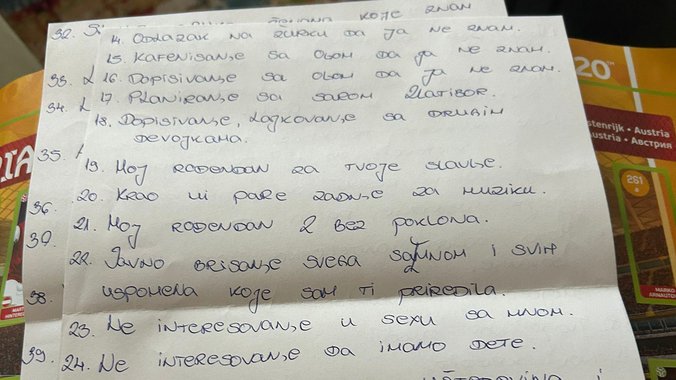 32.
KOJE ZNAM
14. ODLAZAK NA ŽURKU DA JA NE ZNAM.
15. KAFENISANJE SA OLOM DA JA NE ZNAM.
33.
16. DOPISIVANJE SA OLOM DA JA NE ZNAM.
34.
17. PLANIRANJE SA SAROM ZLATIBOR.
18. DOPISIVANJE, LAJKOVANJE SA DRUGIM
DEVOJKAMA.
35.
19. MOJ ROĐENDAN ZA TVOJE SLAVLJE.
36.
20. KRAO MI PARE ZADNJE ZA MUZIKU.
37.
21. MOJ ROĐENDAN 2 BEZ POKLONA.
22. JAVNO BRISANJE SVEGA SA MNOM I SVIH
38.
USPOMENA KOJE SAM TI PRIREDILA.
23. NE INTERESOVANJE U SEXU SA MNOM.
39.
24. NE INTERESOVANJE DA IMAMO DETE.
20™
stenrijk • Austria
ustria • Австрия
281
MARKO
ARNAUTOV
MART
HINTEREG